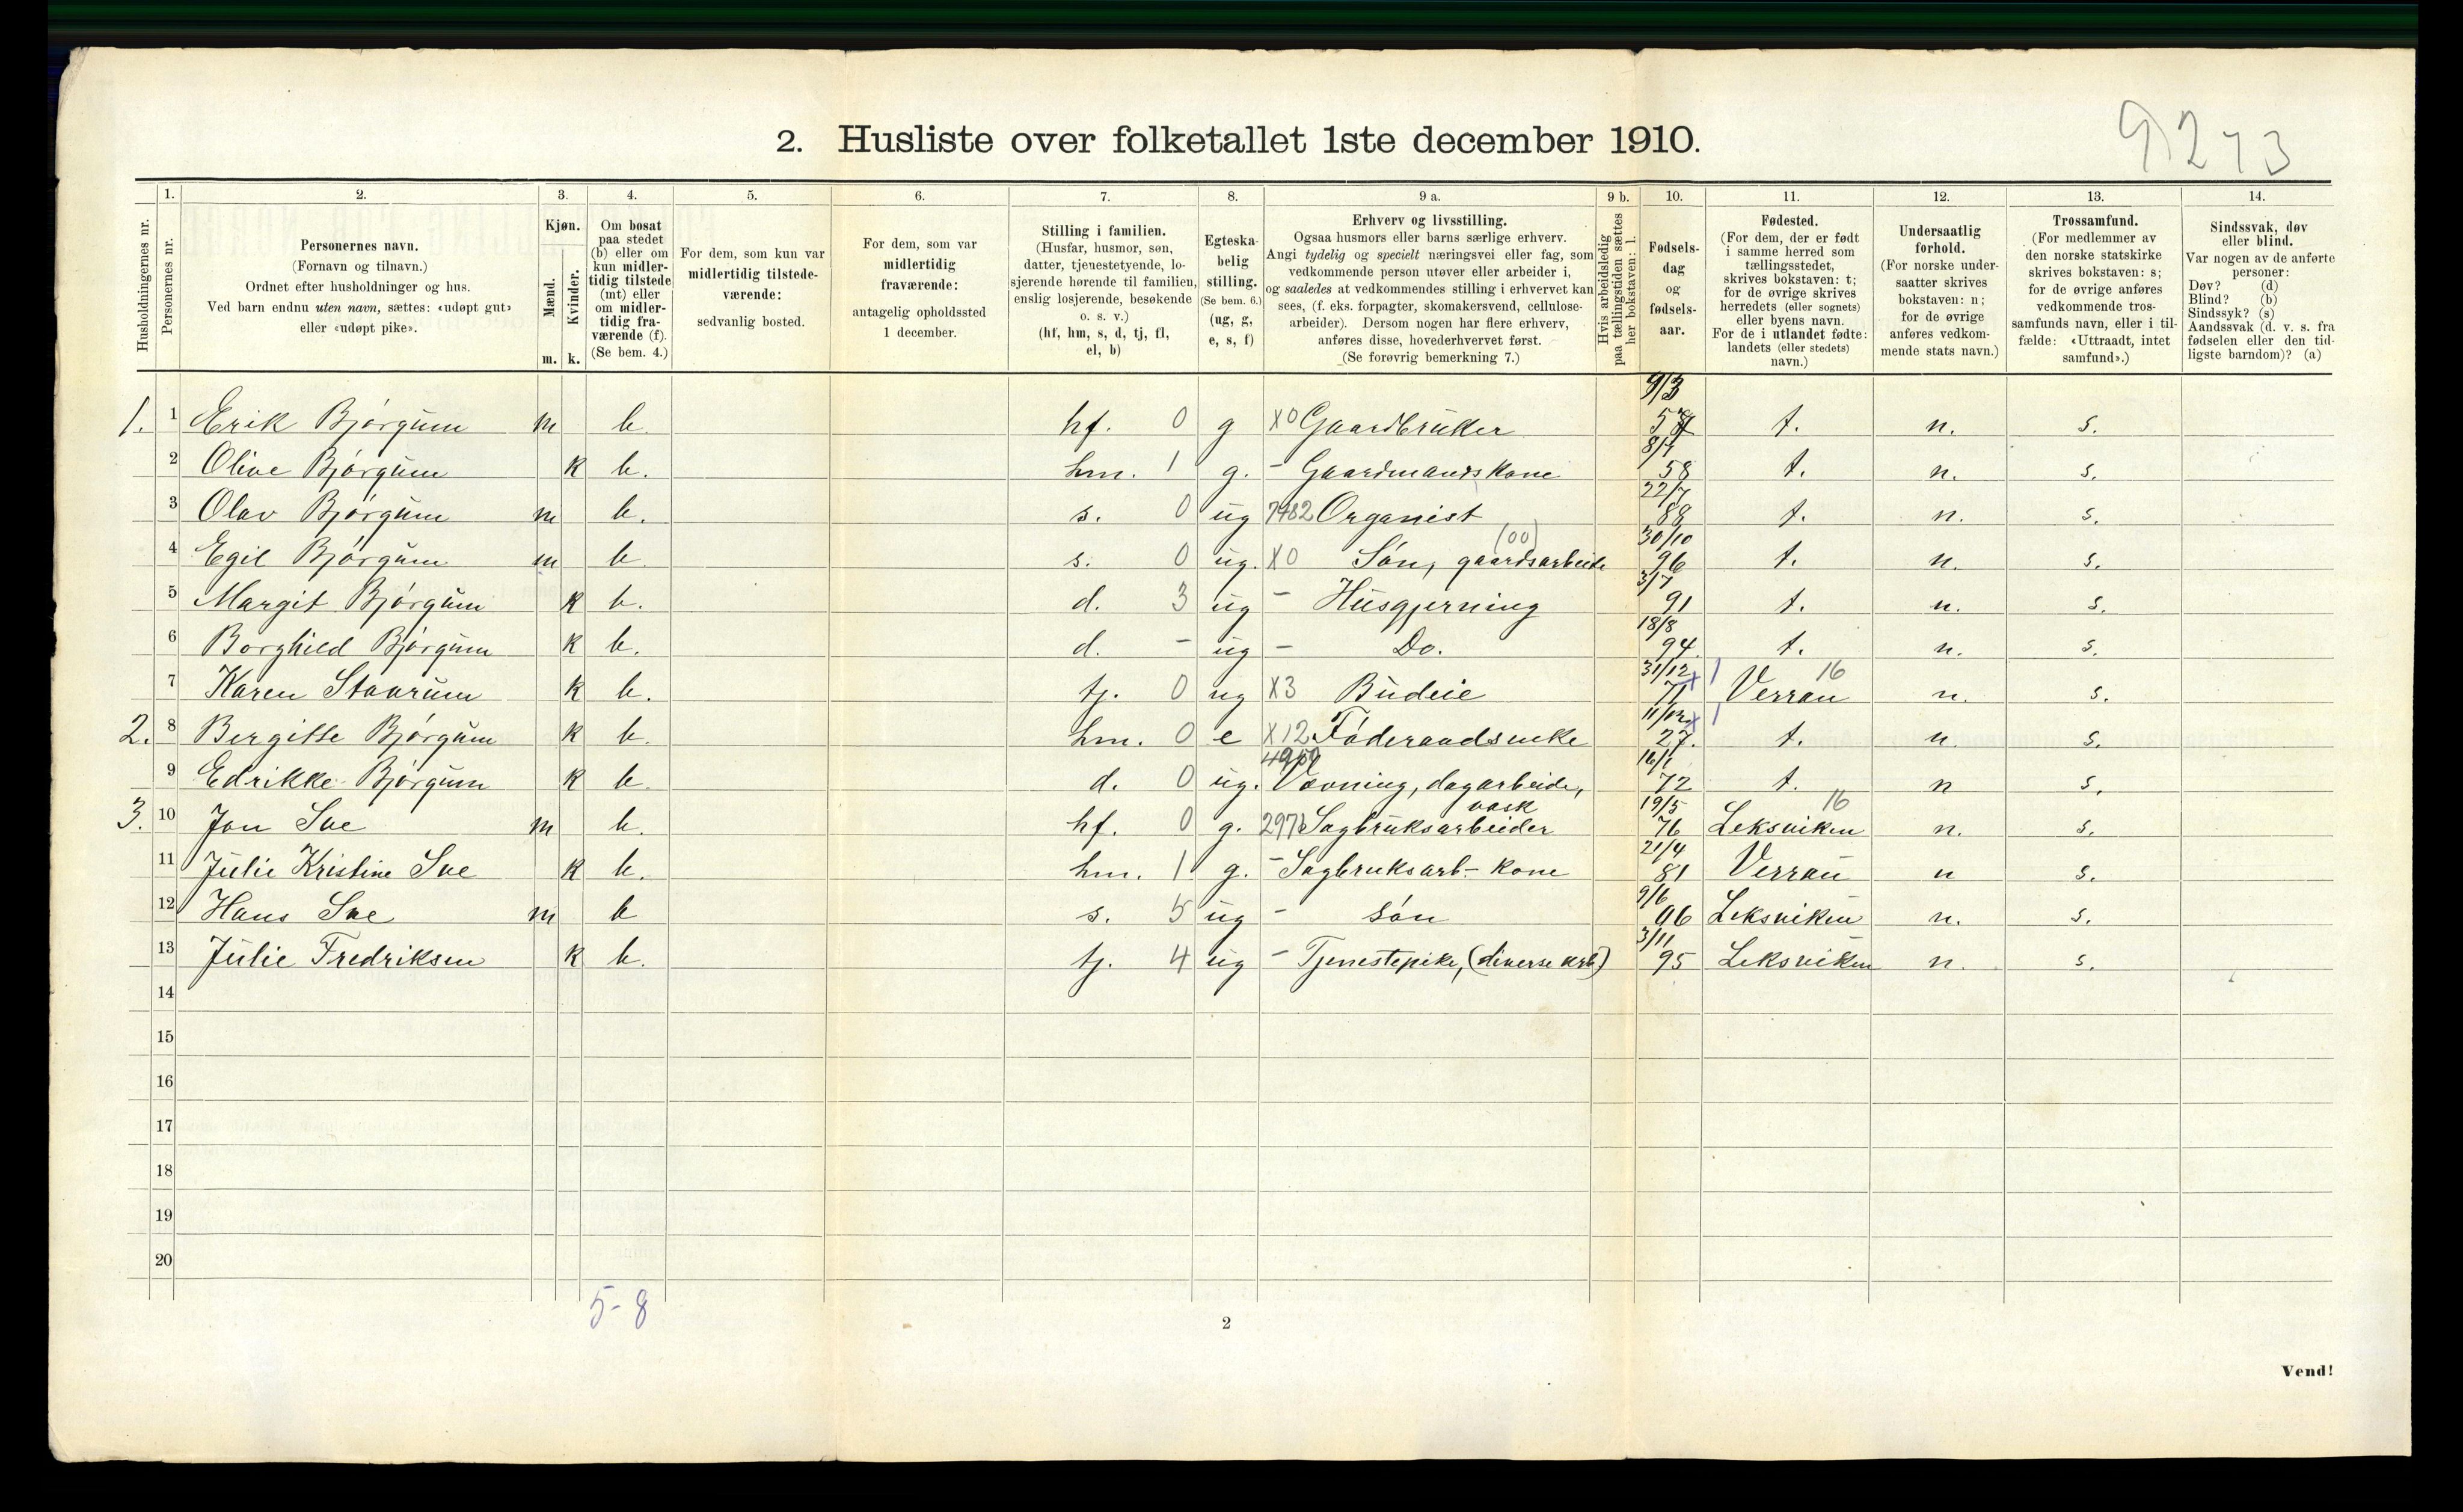 9273
2. Husliste over folketallet 1ste december 1910.
Husholdningernes nr.
1. Personernes nr.
2. Personernes navn. (Fornavn og tilnavn.) Ordnet efter husholdninger og hus. Ved barn endnu uten navn, sættes: «udøpt gut» eller «udøpt pike».
3. Kjøn. Mænd. m. Kvinder. k.
4. Om bosat paa stedet (b) eller om kun midlertidig tilstede (mt) eller om midlertidig fraværende (f). (Se bem. 4.)
5. For dem, som kun var midlertidig tilstedeværende: sedvanlig bosted.
6. For dem, som var midlertidig fraværende: antagelig opholdssted 1 december.
7. Stilling i familien. (Husfar, husmor, søn, datter, tjenestetyende, losjerende hørende til familien, enslig losjerende, besøkende o. s. v.) (hf, hm, s, d, tj, fl, el, b)
8. Egteskabelig stilling. (Se bem. 6.) (ug, g, e, s, f)
9 a. Erhverv og livsstilling. Ogsaa husmors eller barns særlige erhverv. Angi tydelig og specielt næringsvei eller fag, som vedkommende person utøver eller arbeider i, og saaledes at vedkommendes stilling i erhvervet kan sees, (f. eks. forpagter, skomakersvend, cellulosearbeider). Dersom nogen har flere erhverv, anføres disse, hovederhvervet først. (Se forøvrig bemerkning 7.)
9 b. Hvis arbeidsledig paa tællingstiden sættes her bokstaven: l.
10. Fødselsdag og fødselsaar.
11. Fødested. (For dem, der er født i samme herred som tællingsstedet, skrives bokstaven: t; for de øvrige skrives herredets (eller sognets) eller byens navn. For de i utlandet fødte: landets (eller stedets) navn.)
12. Undersaatlig forhold. (For norske undersaatter skrives bokstaven: n; for de øvrige anføres vedkommende stats navn.)
13. Trossamfund. (For medlemmer av den norske statskirke skrives bokstaven: s; for de øvrige anføres vedkommende trossamfunds navn, eller i tilfælde: «Uttraadt, intet samfund».)
14. Sindssvak, døv eller blind. Var nogen av de anførte personer: Døv? (d) Blind? (b) Sindssyk? (s) Aandssvak (d. v. s. fra fødselen eller den tidligste barndom)? (a)
1. 1 Erik Bjørgum m b hf. 0 g X0 Gaardbruker 9/3 t. n. s.
2 Olive Bjørgum k b. hm. 1 g. - Gaardmandskone 58 t. n. s.
3 Olav Bjørgum m b. s. 0 ug 7482 Organist 22/7 88 t. n. s.
4 Egil Bjørgum m b. s. 0 ug. X0 Søn, gaardsarbeide (00) 30/10 96 t. n. s.
5 Margit Bjørgum k b. d. 3 ug - Husgjerning 3/7 91 t. n. s.
6 Borghild Bjørgum k b. d. - ug - Do. 18/8 94. t. n. s.
7 Karen Staurum k b. tj. 0 ug X3 Budeie 31/12 71 Verran 16 n. s.
2. 8 Bergitte Bjørgum k b. hm. 0 e X12 Føderaadsenke 11/12 27. t. n. s.
9 Edrikke Bjørgum k b. d. 0 ug. Vævning, dagarbeide, vask 16/1 72 t. n s.
3. 10 Jon Sve m b. hf. 0 g. Sagbruksarbeider 19/5 76 Leksviken 16 n. s.
11 Julie Kristine Sve k b. hm. 1 g. - Sagbruksarb- kone 21/4 81 Verran n s.
12 Hans Sve m b s. 5 ug - søn 9/6 96 Leksviken n. s.
13 Julie Fredriksen k b. tj. 4 ug - Tjenestepike, (diverse arb) 3/11 95 Leksviken n. s.
14
15
16
17
18
19
20
5-8
2
Vend!